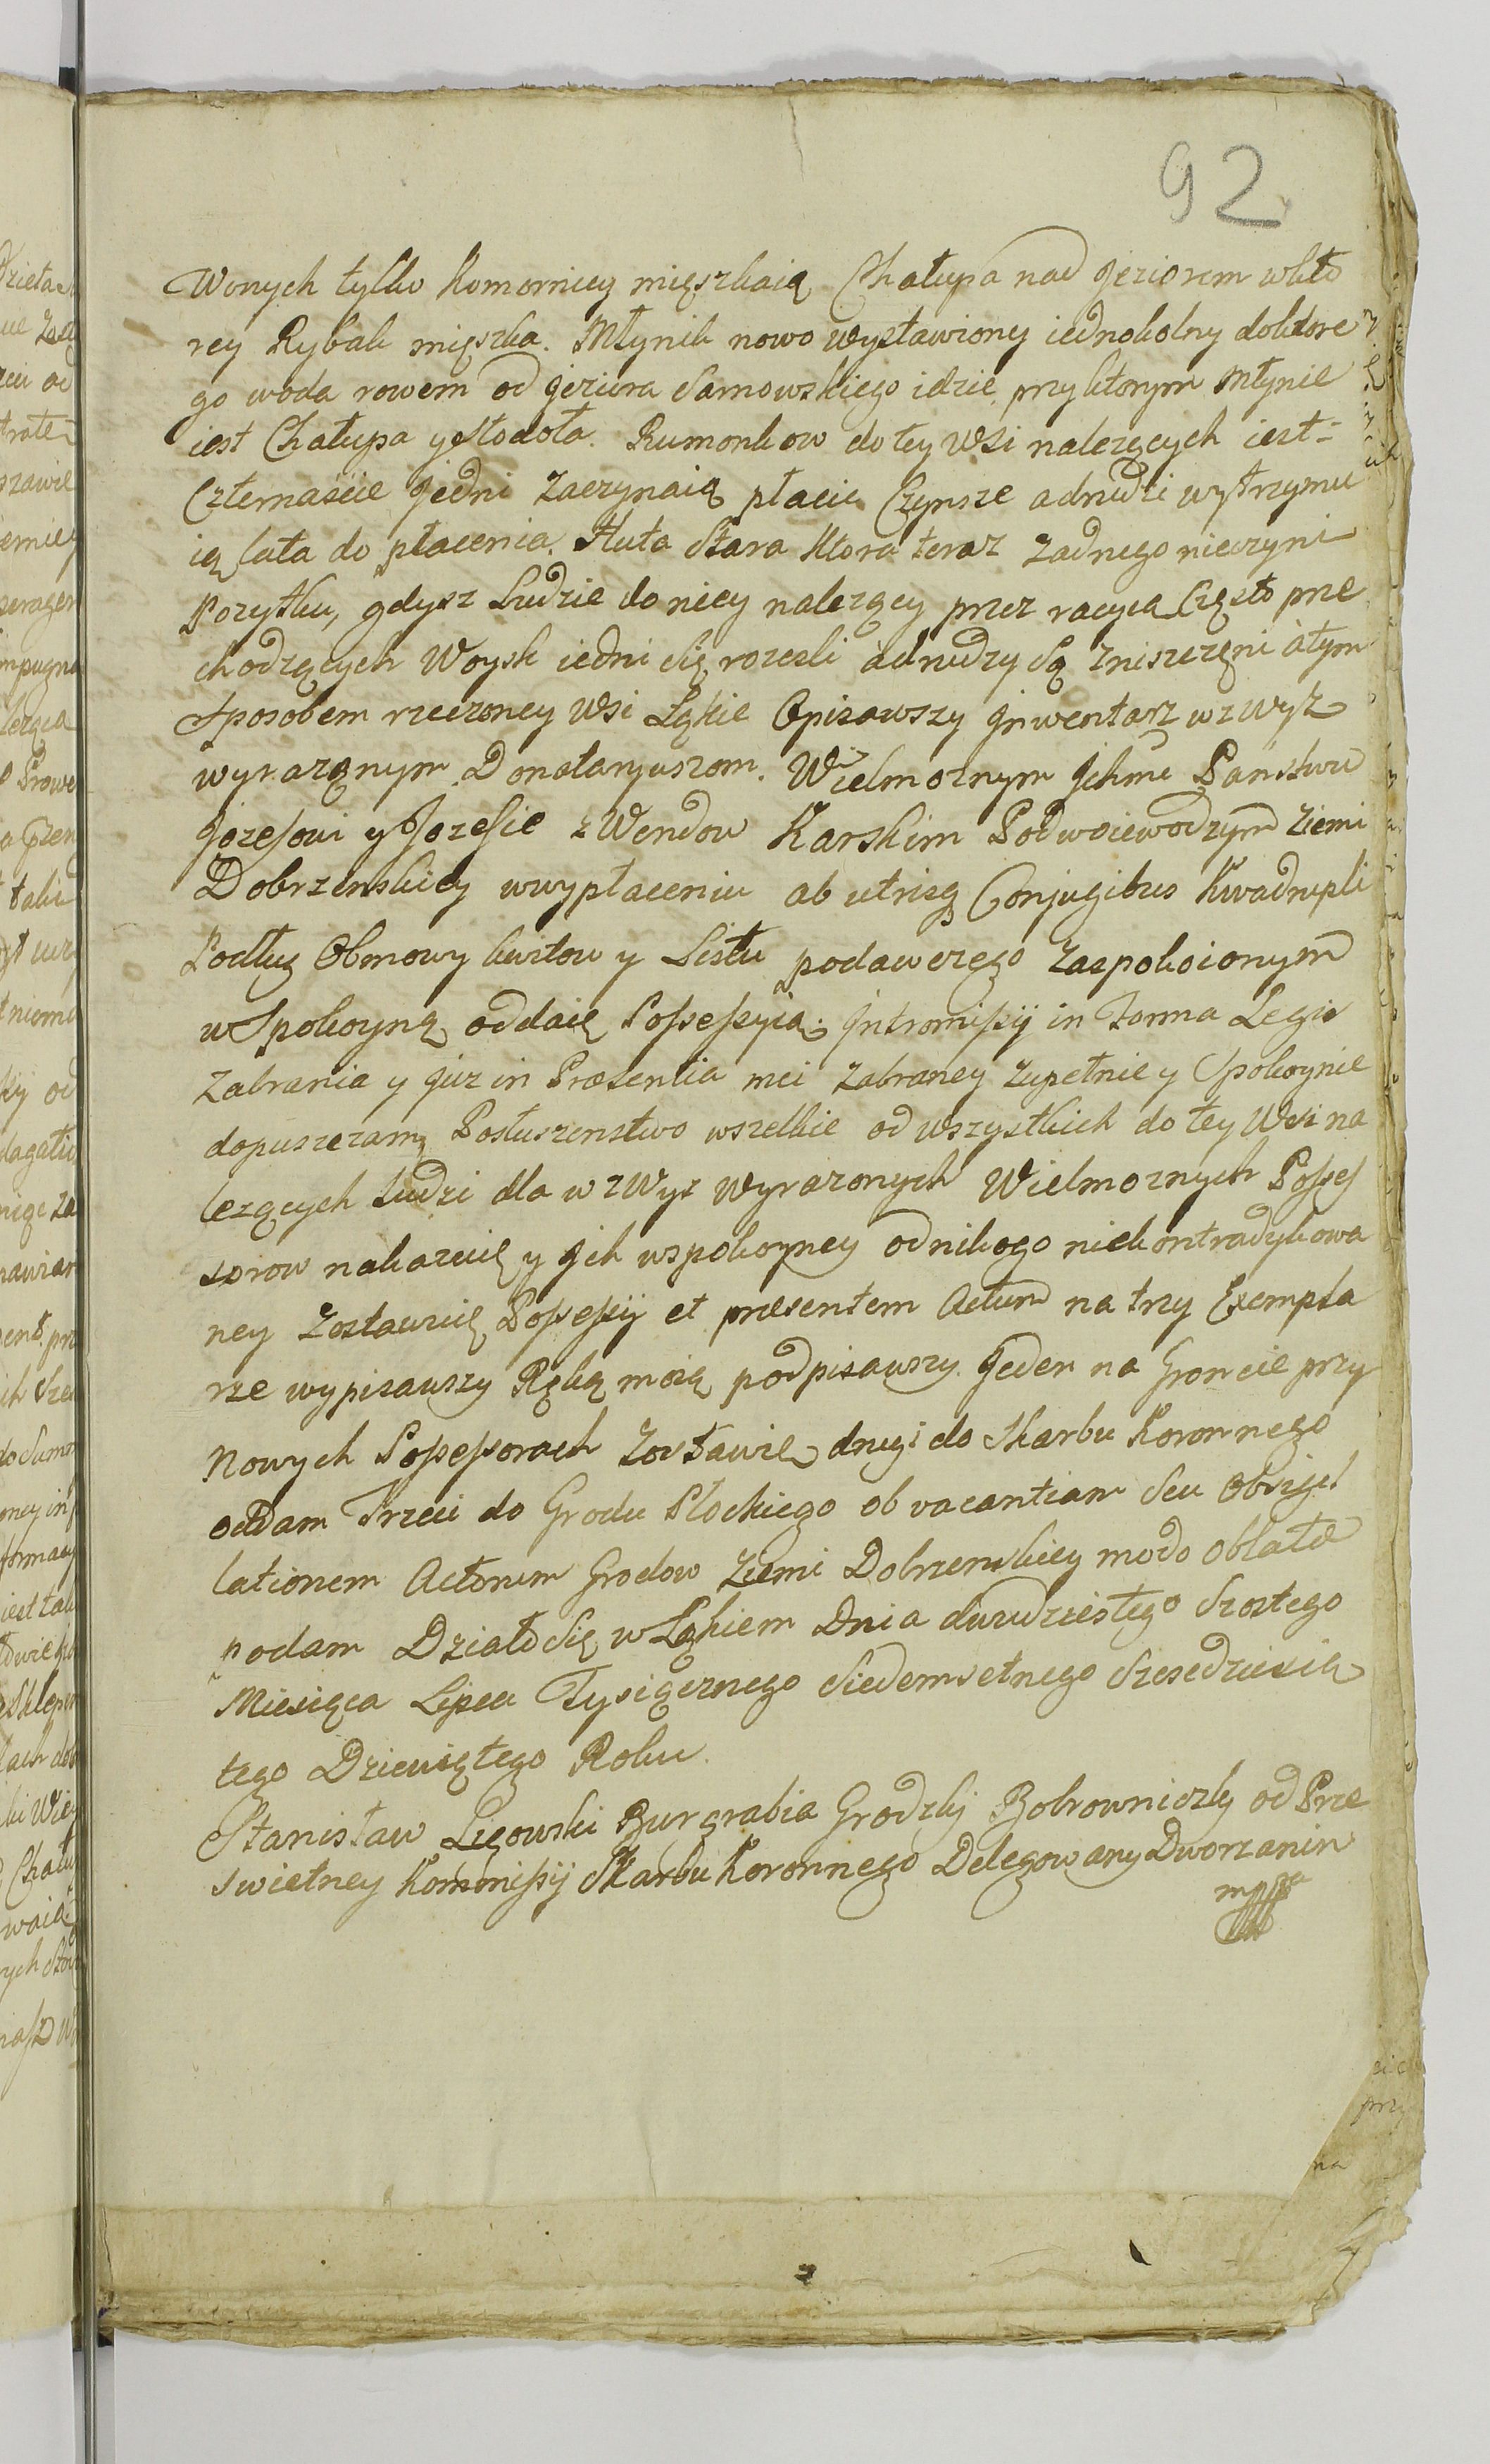 92
Wonych tylko Komornicy mięszkaią Chałupa nad Jeziorem wkto
rey Rybak mięszka. Młynik nowo wystawiony iednokolny doktore
go woda rowem od Jeziora Sarnowskiego idzie przyktorym Młynie
iest Chałupa y Stodoła. Rumonkow do tey Wsi nalezących iest=
Czternaście Jedni Zaczynaią płacic Czynsze adrudzi wytrzymu
ią lata do płacenia. Huta Stara Ktora teraz Zadnego nieczyni
Pozytku, gdysz Ludzie do niey nalezący przez racyią Często prze
chodzących Woysk iedni się rozesli adrudzy są Zniszczeni atym
Sposobem rzeczoney Wsi Ląkie Opisawszy Jnwentarz wzwyz
wyrazonym Donataryuszom. Wielmoznym Jchmc Państwu
Jozefowi y Jozefie z Wendow Karskim Podwoiewodzym Ziemi
Dobrzenskiey wwypłaceniu ab utrisq Conjugibus Kwadrupli
Podług Obmowy kwitow y Listu podawczego Zaspokoionym
w Spokoyną oddaię Possessyią. Jntromissij in Forma Legis
Zabrania y Juz in Præsentia mei Zabraney zupełnie y Spokoynie
dopuszczam, Posłuszenstwo wszelkie od wszystkich do tey Wsi na
lezących Ludzi dla wzwyz wyrazonych Wielmoznych Posses
sorow nakazuię y Jch wspokoyney odnikogo niekontradykowa
ney Zostawuię Possessij et præsentem Actum na trzy Exempla
rze wypisawszy Ręką moią podpisawszy. Jeden na Groncie przy
Nowych Possessorach Zostawię drugi do Skarbu Koronnego
oddam Trzeci do Grodu Płockiego ob vacantiam Seu Obsigil
lationem Actorum Grodow Ziemi Dobrzenskiey modo oblatæ
podam Działo Się w Ląkiem Dnia dwudziestego Szostego
Miesiąca Lipca Tysiącznego Siedemsetnego Szesedziesią
tego Dziewiątego Roku.
Stanisław Ligowski Burgrabia Grodzky Bobrowniczky od Prze
swietney Kommissij Skarbu Koronnego Delegowany Dworzanin
mppa